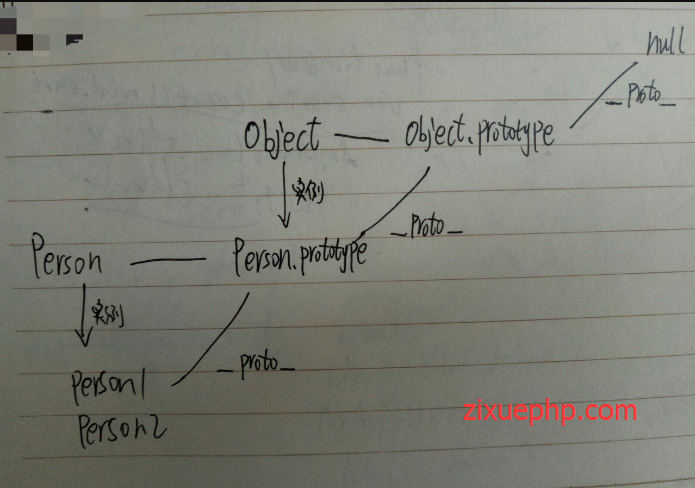 null
_proto_
Object
Object.prototype
实例
_proto_
Person
Person.prototype
实例
_proto_
person1
Person2
zixuephp.com